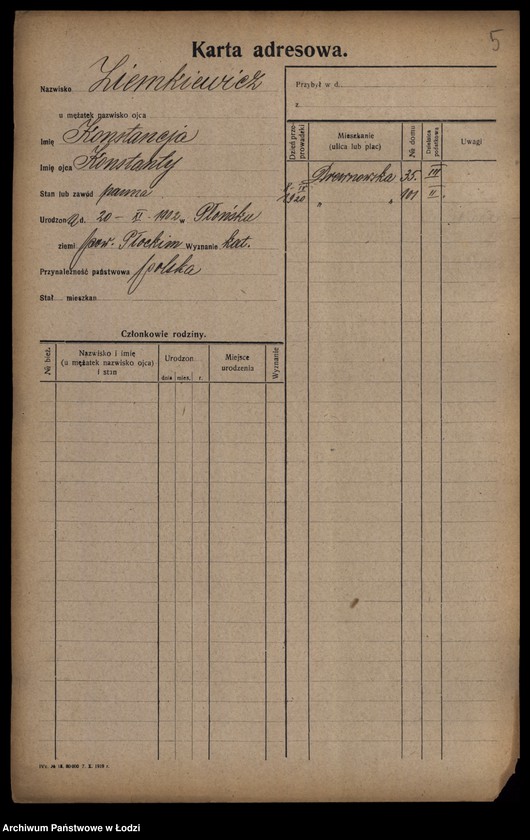 5
Karta adresowa.
Nazwisko Ziemkiewicz
u mężatek nazwisko ojca
Imię Konstancja
Imię ojca Konstanty
Stan lub zawód panna
Urodzona d. 20 – XI – 1902 w Płońsku
ziemi pow. Płockim Wyznanie kat.
Przynależność państwowa polska
Stał mieszkan
Członkowie rodziny.
№ bież.
Nazwisko i imię
(u mężatek nazwisko ojca)
i stan
Urodzon
dnia mies. r.
Miejsce
urodzenia
Wyznanie
Przybył w d.
z
Dzień przeprowadzki
Mieszkanie
(ulica lub plac)
№ domu
Dzielnica policyjna
Uwagi
Drewnowska 35. III
1920 „ „ 101 II.
Archiwum Państwowe w Łodzi